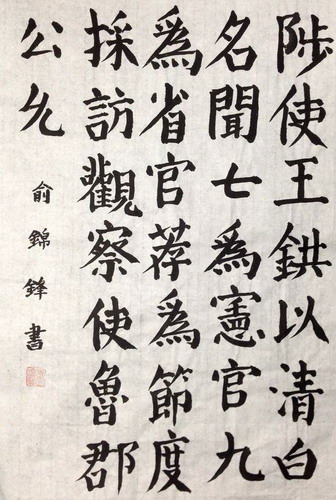 陟使王鉷以清白
名聞七為憲官九
為省官荐為節度
採訪觀察使魯郡
公允
俞錦鋒書